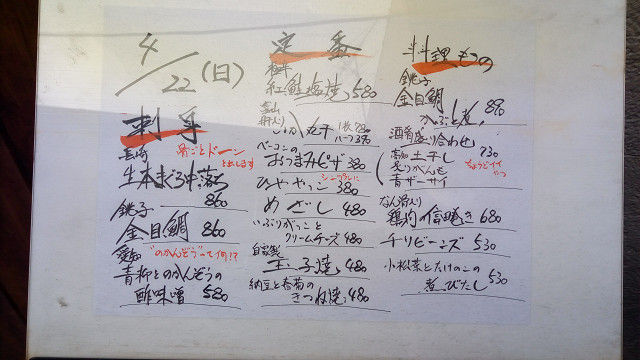 4/22(日)
刺身
長崎
骨ごとドーン
と出します
生本まぐろ中落ち
860
銚子
金目鯛 860
愛知
"のかんぞう"って何!?
青柳とのかんぞうの
酢味噌 580
定番
紅鮭塩焼 580
富山
肝入り
いか丸干 1枚 730
ハーフ 370
ベーコンの
おつまみピザ 380
シンプルに
ひややっこ 380
めざし 480
いぶりがっこと
クリームチーズ 480
自家製
玉子焼 480
納豆と春菊の
きつね焼 480
料理もの
銚子
金目鯛
かぶと煮 890
酒肴盛り合わせ
730
ちょうどイイ
やつ
青ザーサイ
なん骨入り
鶏肉の信田巻き 680
チリビーンズ 530
小松菜とたけのこの
煮びたし 530